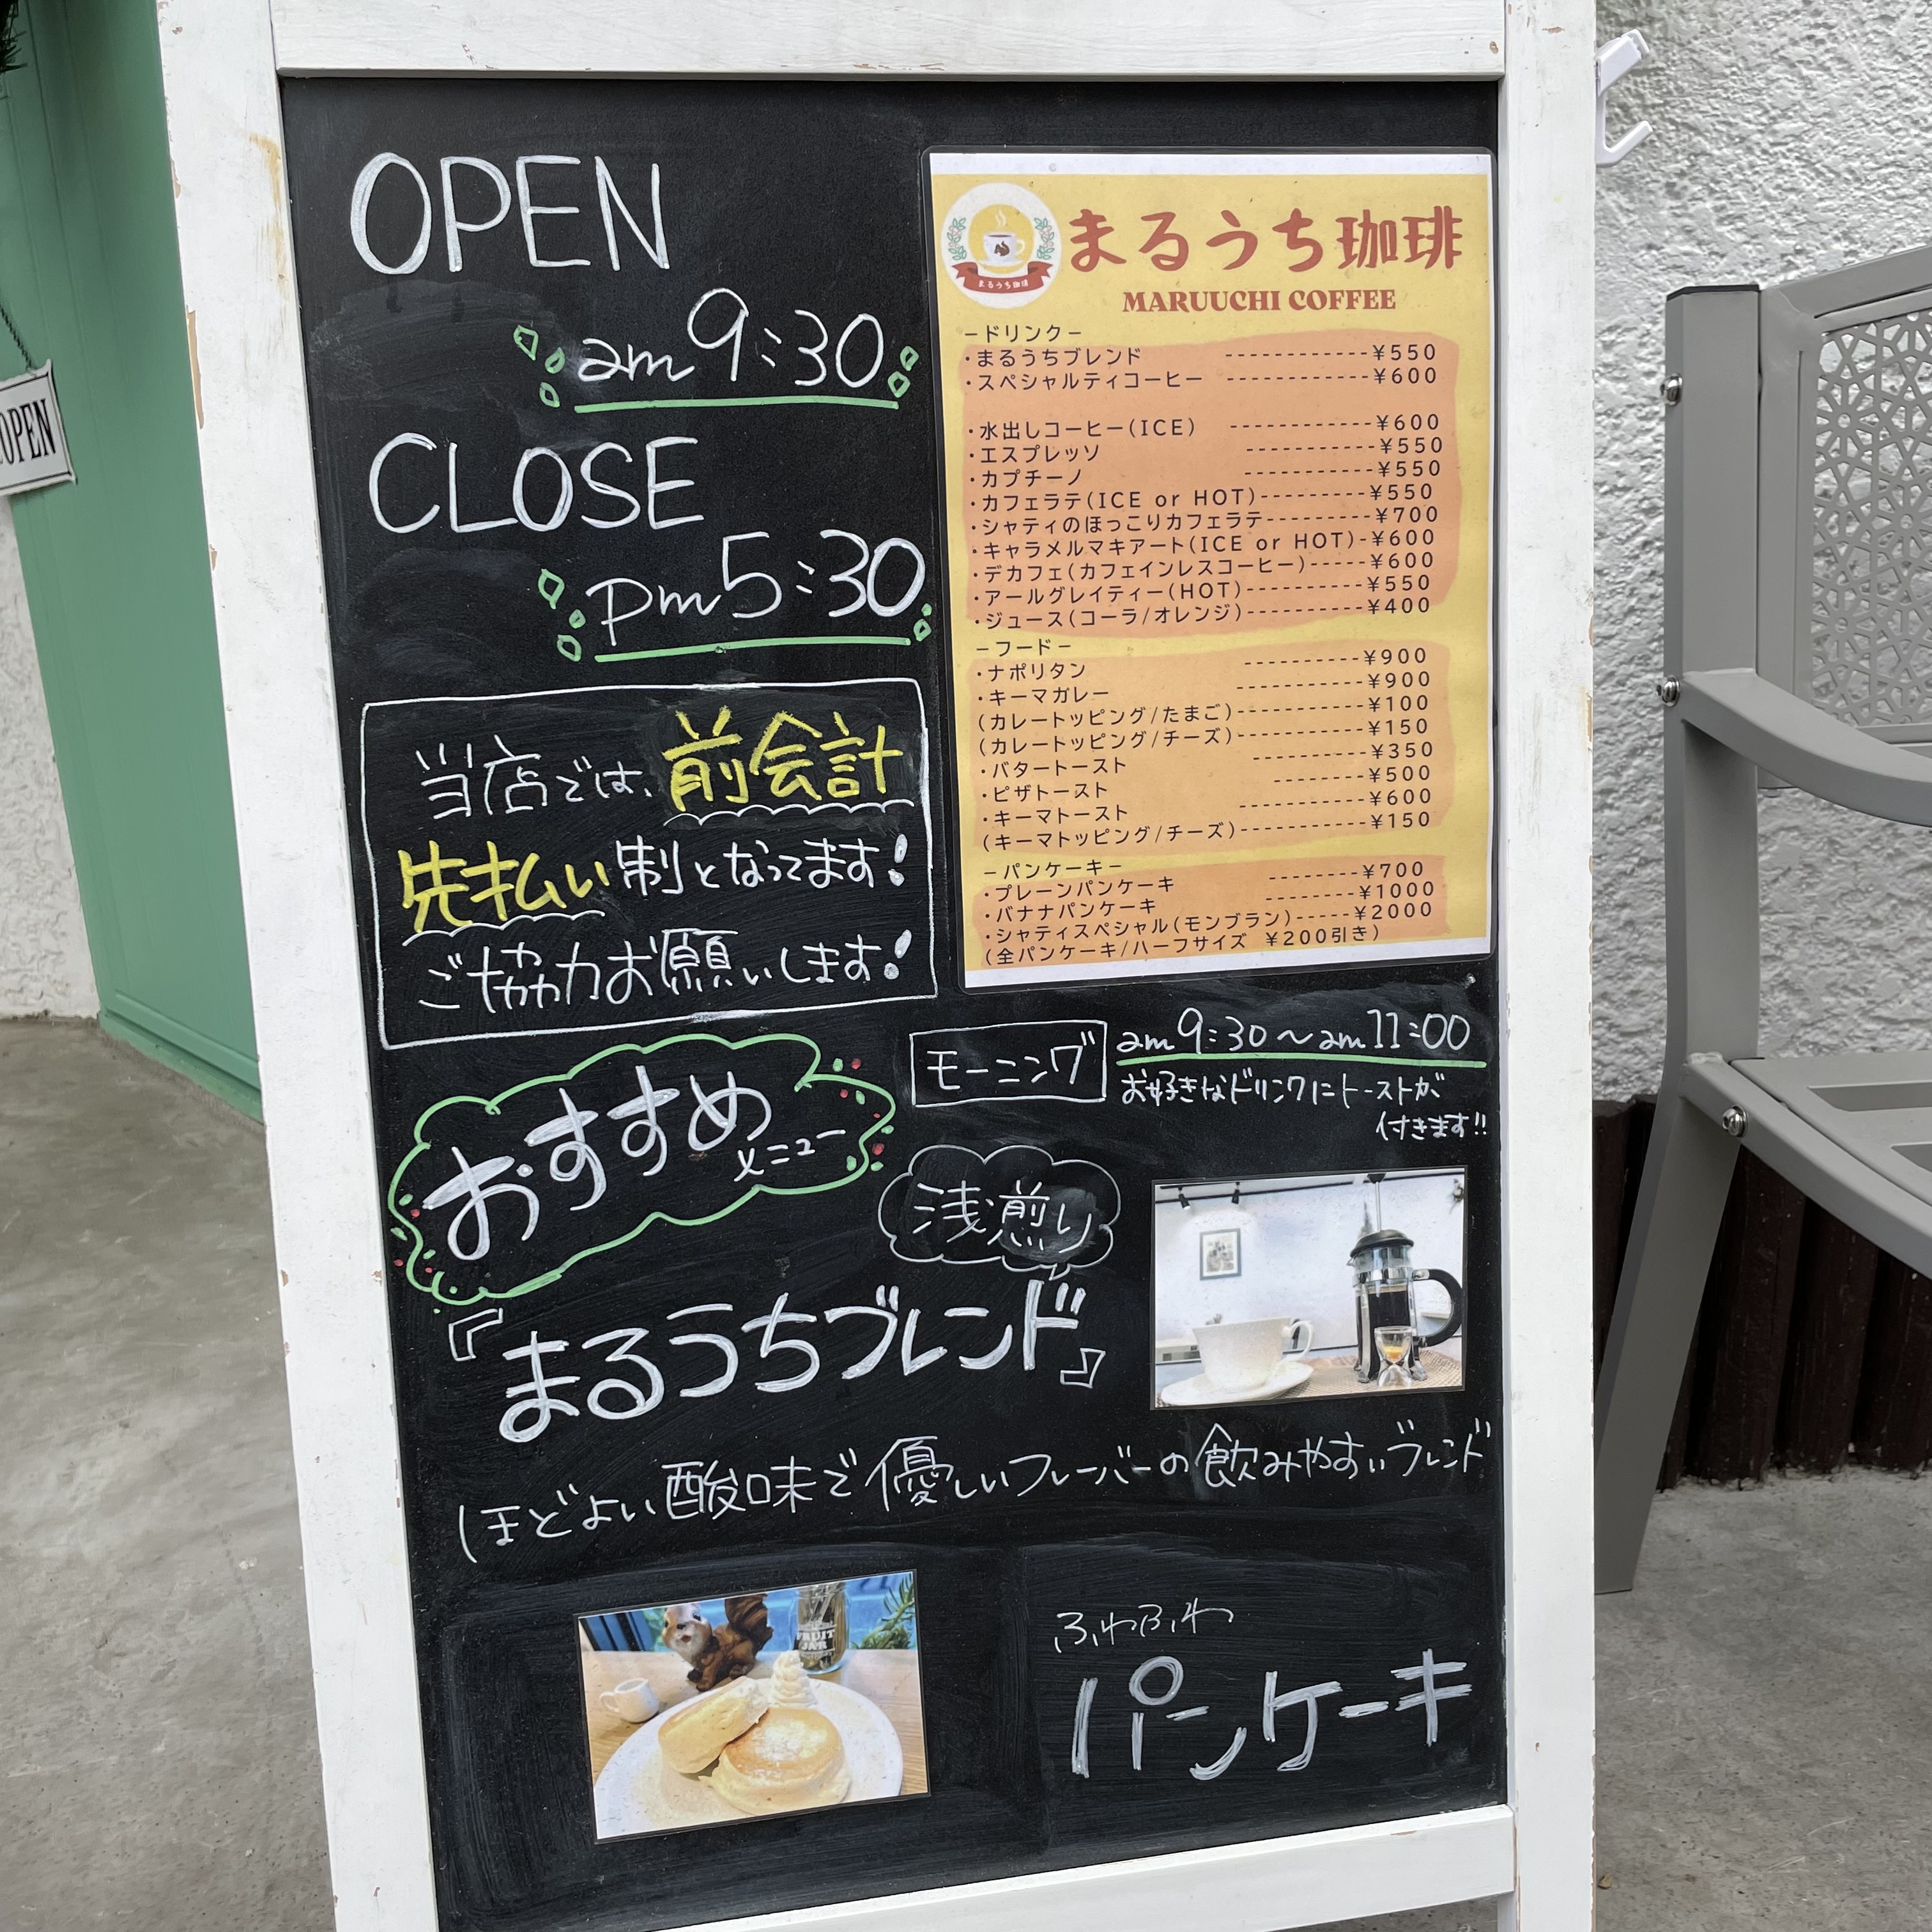 OPEN
OPEN
am9:30
CLOSE
pm5:30
当店では、前会計
先払い制となってます!
ご協力お願いします!
まるうち珈琲
まるうち珈琲
MARUUCHI COFFEE
－ドリンク－
・まるうちブレンド ------------¥550
・スペシャルティコーヒー ------------¥600
・水出しコーヒー(ICE) ------------¥600
・エスプレッソ -----------¥550
・カプチーノ -----------¥550
・カフェラテ(ICE or HOT)---------¥550
・シャティのほっこりカフェラテ---------¥700
・キャラメルマキアート(ICE or HOT)-¥600
・デカフェ(カフェインレスコーヒー)-----¥600
・アールグレイティー(HOT)----------¥550
・ジュース(コーラ/オレンジ)----------¥400
－フード－
・ナポリタン ----------¥900
・キーマカレー -----------¥900
(カレートッピング/たまご)-----------¥100
(カレートッピング/チーズ)-----------¥150
・バタートースト ----------¥350
・ピザトースト --------¥500
・キーマトースト -----------¥600
(キーマトッピング/チーズ)-----------¥150
－パンケーキ－
・プレーンパンケーキ --------¥700
・バナナパンケーキ --------¥1000
・シャティスペシャル(モンブラン)-----¥2000
(全パンケーキ/ハーフサイズ ¥200引き)
モーニング am9:30～am11:00
お好きなドリンクにトーストが
付きます!!
おすすめ
メニュー
浅煎り
『まるうちブレンド』
ほどよい酸味で優しいフレーバーの飲みやすいブレンド
FRUIT
JAR
ふわふわ
パンケーキ